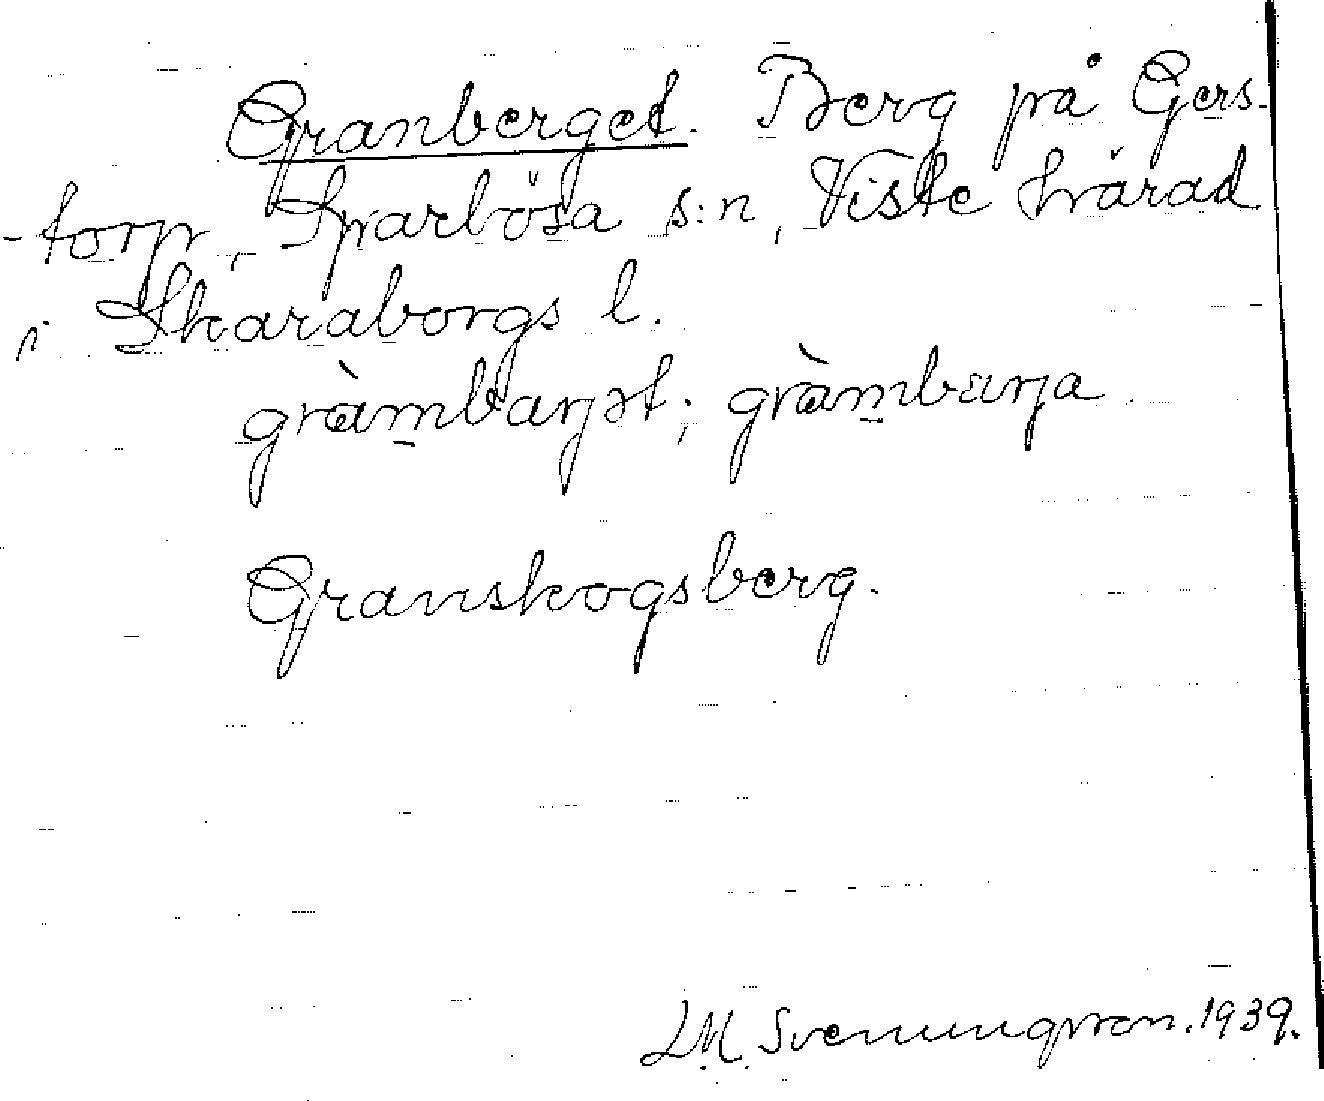 Granberget. Berg på Gers-
-torp, Sparlösa s:n, Viste härad
i Skaraborgs l.
gràmbarjət; gràmbarja
Granskogsberg.
LM. Svenungsson. 1939.